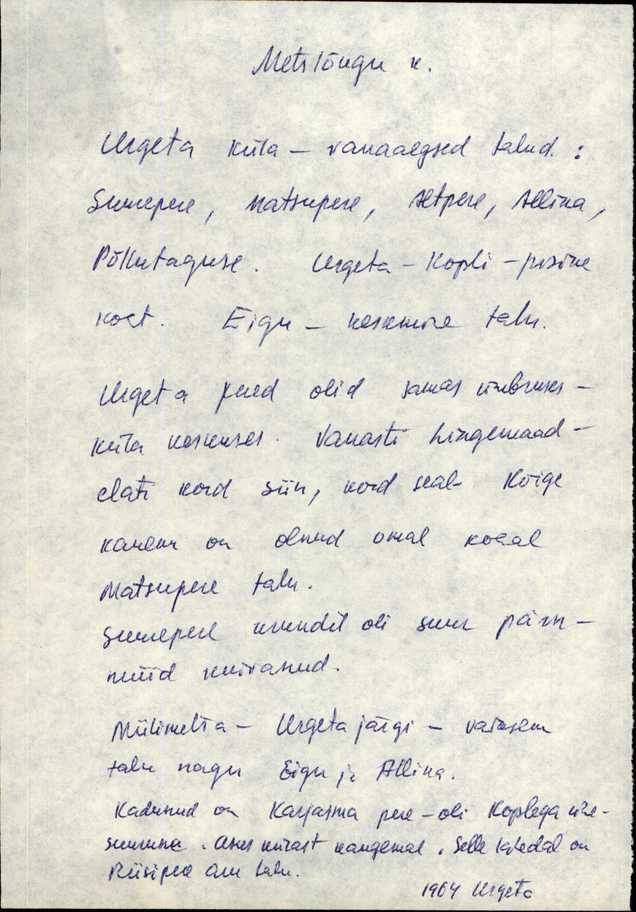 Metslõugu k.
Urgeta küla – vanaaegsed talud :
Suurepere, Matsupere, Altpere, Allina,
Põllutaguse. Urgeta – Kopli – pisine
koct. Eigu – keskmine talu.
Urgeta pered olid samas ümbruses –
küla keskuses. Vanasti hingemaad –
elati kord siin, kord seal. Kõige
kauem on olnud omal kohal
Matsupere talu.
Suurepere krundil oli suur pärn –
nüüd kuivanud.
Müüri – Urgeta järgi – varasem
talu nagu Eigu ja Allina.
Kadunud on Karjasma pere – oli Kopliga ühe-
suurune. Asus külast kaugemal. Selle lähedal on
Riisipere Anu talu.
1964 Urgeta